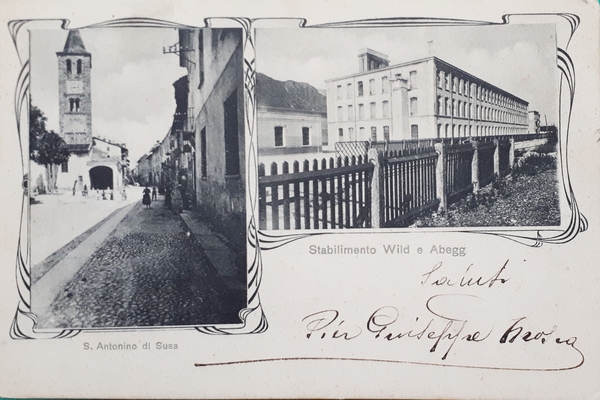 Stabilimento Wild e Abegg
Saluti
Pier Giuseppe
S. Antonino di Susa